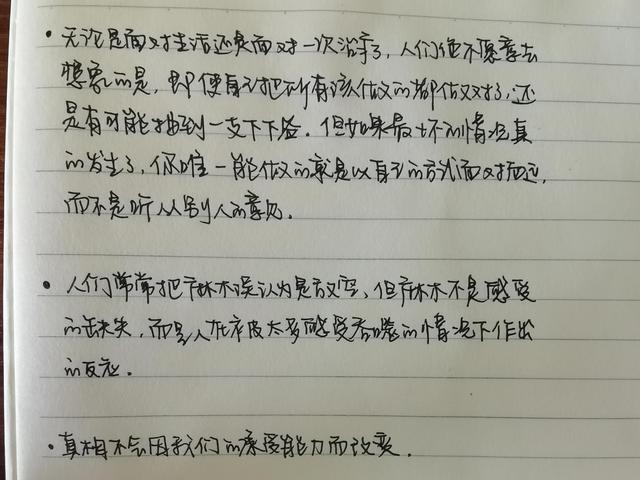 • 无论是面对生活还是面对一次治疗,人们绝不愿意去
想象的是,即使自己把所有该做的都做对了,还
是有可能抽到一支下下签.但如果最坏的情况真
的发生了,你唯一能做的就是以自己的方式面对面它,
而不是听从别人的意见.
• 人们常常把麻木误认为是放空,但麻木不是感受
的缺失,而是人在被太多感受吞噬的情况下作出
的反应.
• 真相不会因我们的承受能力而改变.